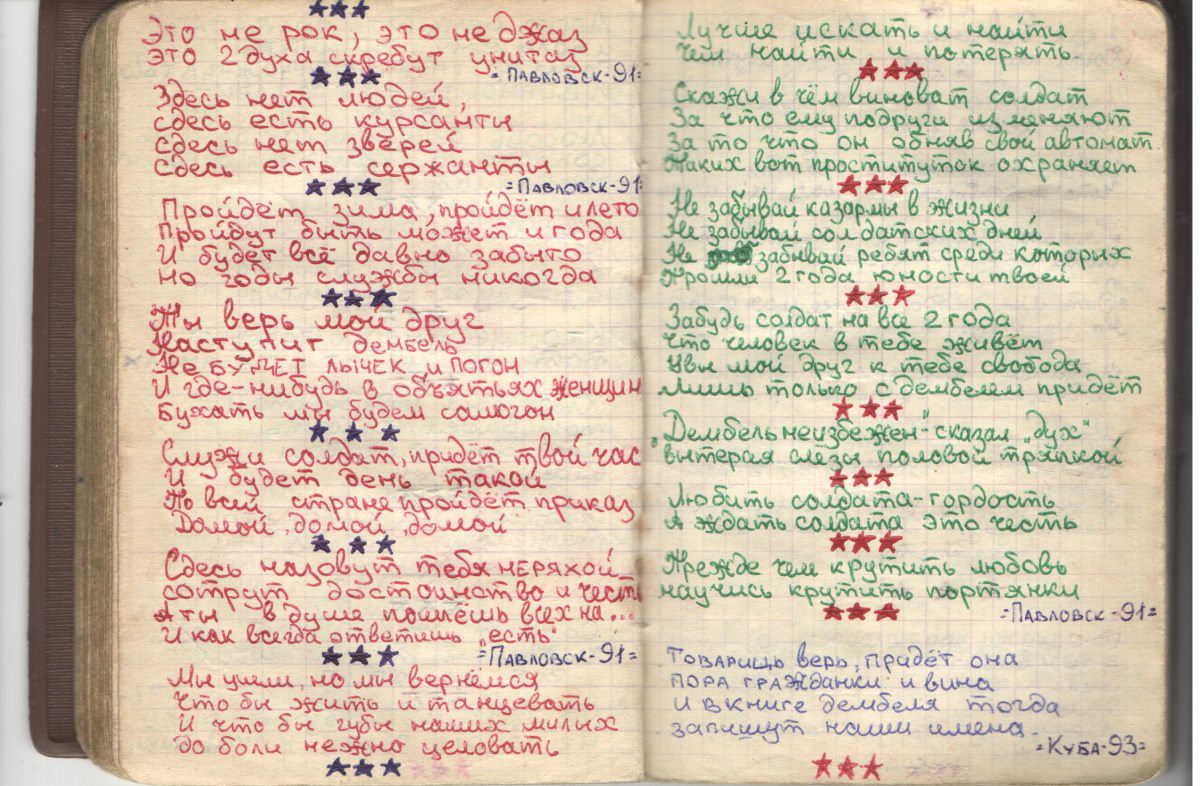 Это не рок, это не джаз
это 2 духа скребут унитаз
=Павловск-91=
Здесь нет людей,
сдесь есть курсанты
сдесь нет зверей
сдесь есть сержанты
=Павловск-91=
Пройдёт зима, пройдёт и лето
Пройдут быть может и года
И будет всё давно забыто
Но годы службы никогда
Ты верь мой друг
Наступит дембель
Не будет лычек и погон
И где-нибудь в объятьях женщин
Бухать мы будем самогон
Служи солдат, придёт твой час
И будет день такой
По всей стране пройдёт приказ
Домой, домой, домой
Сдесь назовут тебя неряхой
сотрут достоинство и честь
А ты в душе пошлёшь всех на...
И как всегда ответишь "есть"
=Павловск-91=
Мы ушли, но мы вернёмся
Что бы жить и танцевать
И что бы губы наших милых
до боли нежно целовать
Лучше искать и найти
Чем найти и потерять.
Скажи в чём виноват солдат
За что ему подруги изменяют
За то что он обняв свой автомат.
Таких вот проституток охраняет
Не забывай казармы в жизни
Не забывай солдатских дней
Не забывай ребят среди которых
Прошли 2 года юности твоей
Забудь солдат на все 2 года
Что человек в тебе живёт
Увы мой друг к тебе свобода
Лишь только с дембелем придёт
„Дембель неизбежен"-сказал „дух"
вытерая слёзы половой тряпкой
Любить солдата-гордость
А ждать солдата это честь
Прежде чем крутить любовь
научись крутить портянки
=Павловск-91=
Товарищь верь, придёт она
пора гражданки и вина
И в книге дембеля тогда
запишут наши имена.
=Куба-93=